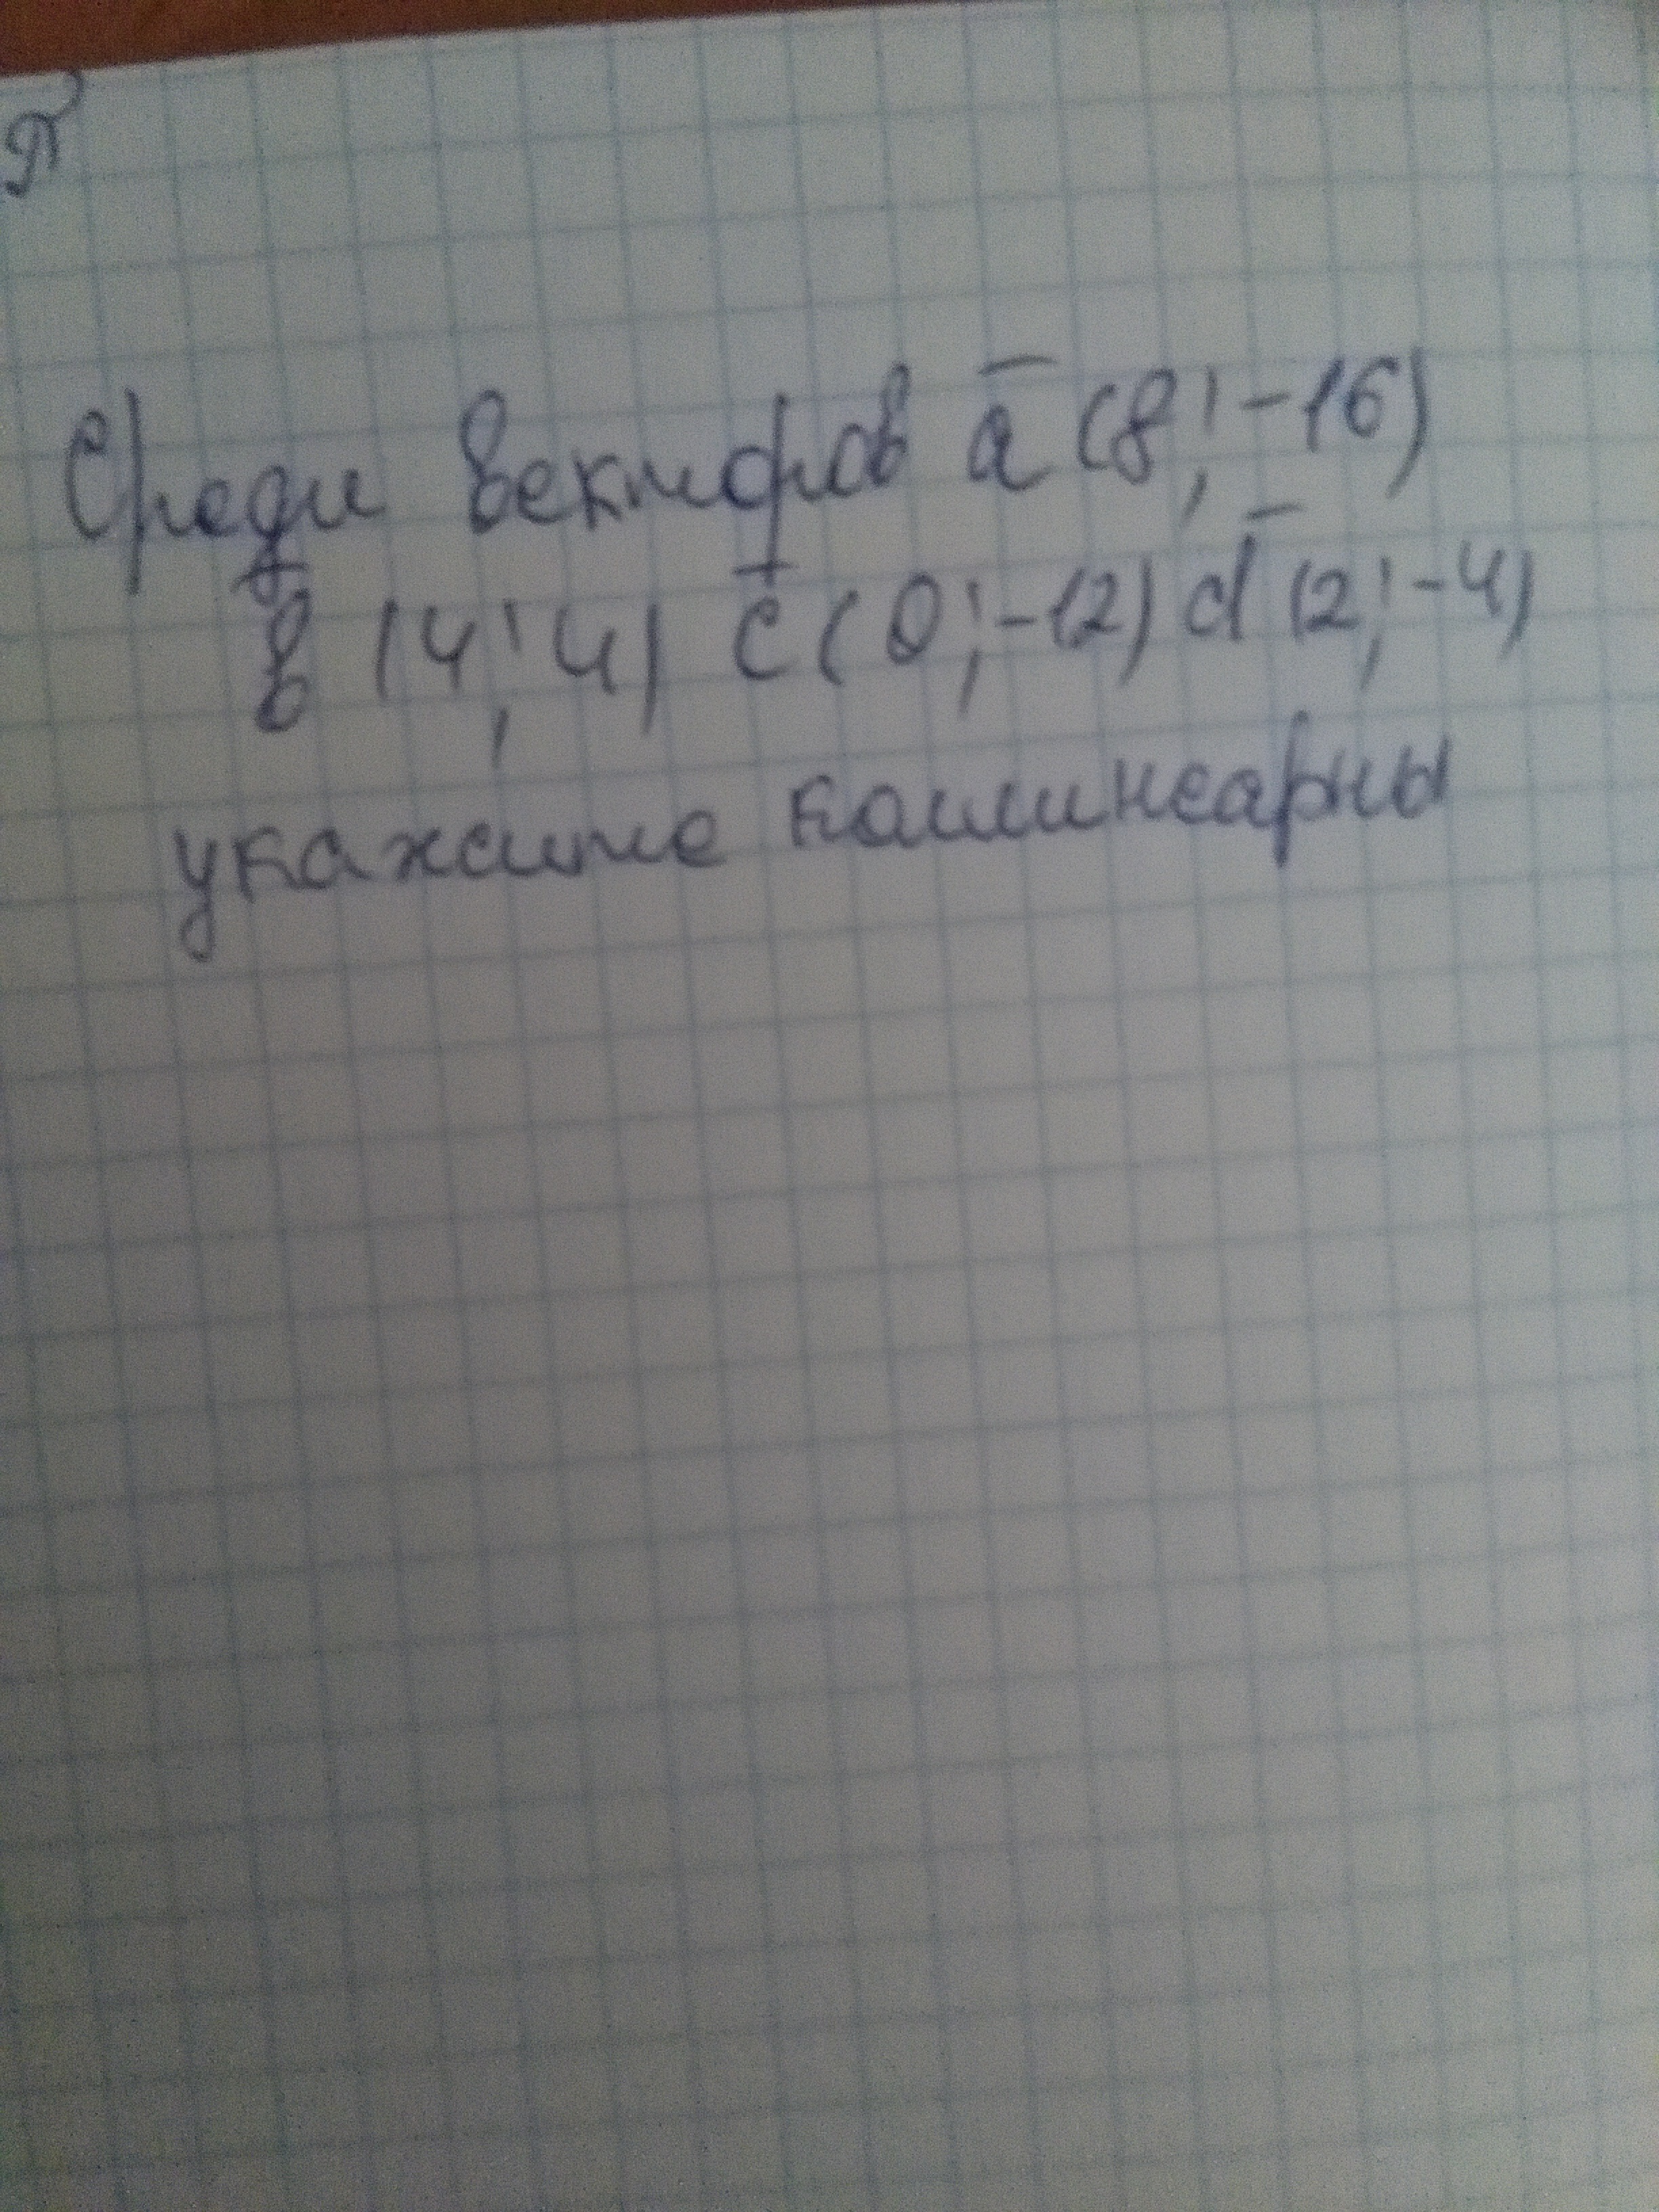 Среди векторов a̅ (8; -16)
b̅ (4; 4) c̅ (0; -12) d̅ (2; -4)
укажите коллинеарны